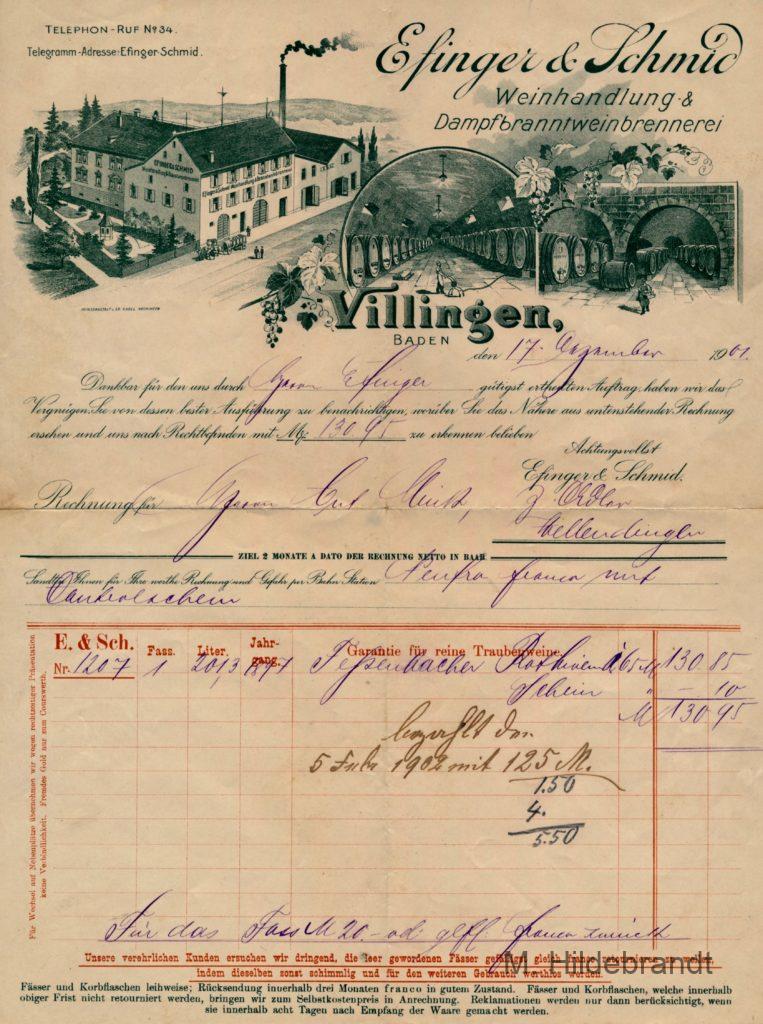 TELEPHON-RUF No 34.
Telegramm-Adresse: Efinger-Schmid.
Efinger & Schmid
Weinhandlung &
Dampfbranntweinbrennerei
EFINGER & SCHMID
Villingen,
BADEN
den 17. Dezember 1901.
Dankbar für den uns durch Herrn Efinger gütigst ertheilten Auftrag, haben wir das
Vergnügen Sie von dessen bester Ausführung zu benachrichtigen, worüber Sie das Nähere aus untenstehender Rechnung
ersehen und uns nach Rechtbefinden mit Mk: 130.95 zu erkennen belieben
Achtungsvollst
Efinger & Schmid.
Rechnung für Herrn z. Adler
ZIEL 2 MONATE A DATO DER RECHNUNG NETTO IN BAAR.
Sandten Ihnen für Ihre werthe Rechnung und Gefahr per Bahn Station Neufra franco mit
Controlschein
E. & Sch. Fass. Liter. Jahrgang. Garantie für reine Traubenweine.
Nr. 1207 1 201,3 Rothwein à 65 M 130.85
Schein " - 10
M 130 95
bezahlt den
5 Febr 1902 mit 125 M.
1.50
4.
5.50
Für das Fass M 20.- od. franco zurück
Für Wechsel auf Nebenplätze übernehmen wir wegen rechtzeitiger Präsentation
keine Verbindlichkeit. Fremdes Geld nur zum Courswerth.
Unsere verehrlichen Kunden ersuchen wir dringend, die leer gewordenen Fässer gefälligst gleich franco retournieren zu wollen,
indem dieselben sonst schimmlig und für den weiteren Gebrauch werthlos werden.
M. Hildebrandt
Fässer und Korbflaschen leihweise; Rücksendung innerhalb drei Monaten franco in gutem Zustand. Fässer und Korbflaschen, welche innerhalb
obiger Frist nicht retourniert werden, bringen wir zum Selbstkostenpreis in Anrechnung. Reklamationen werden nur dann berücksichtigt, wenn
sie innerhalb acht Tagen nach Empfang der Waare gemacht werden.